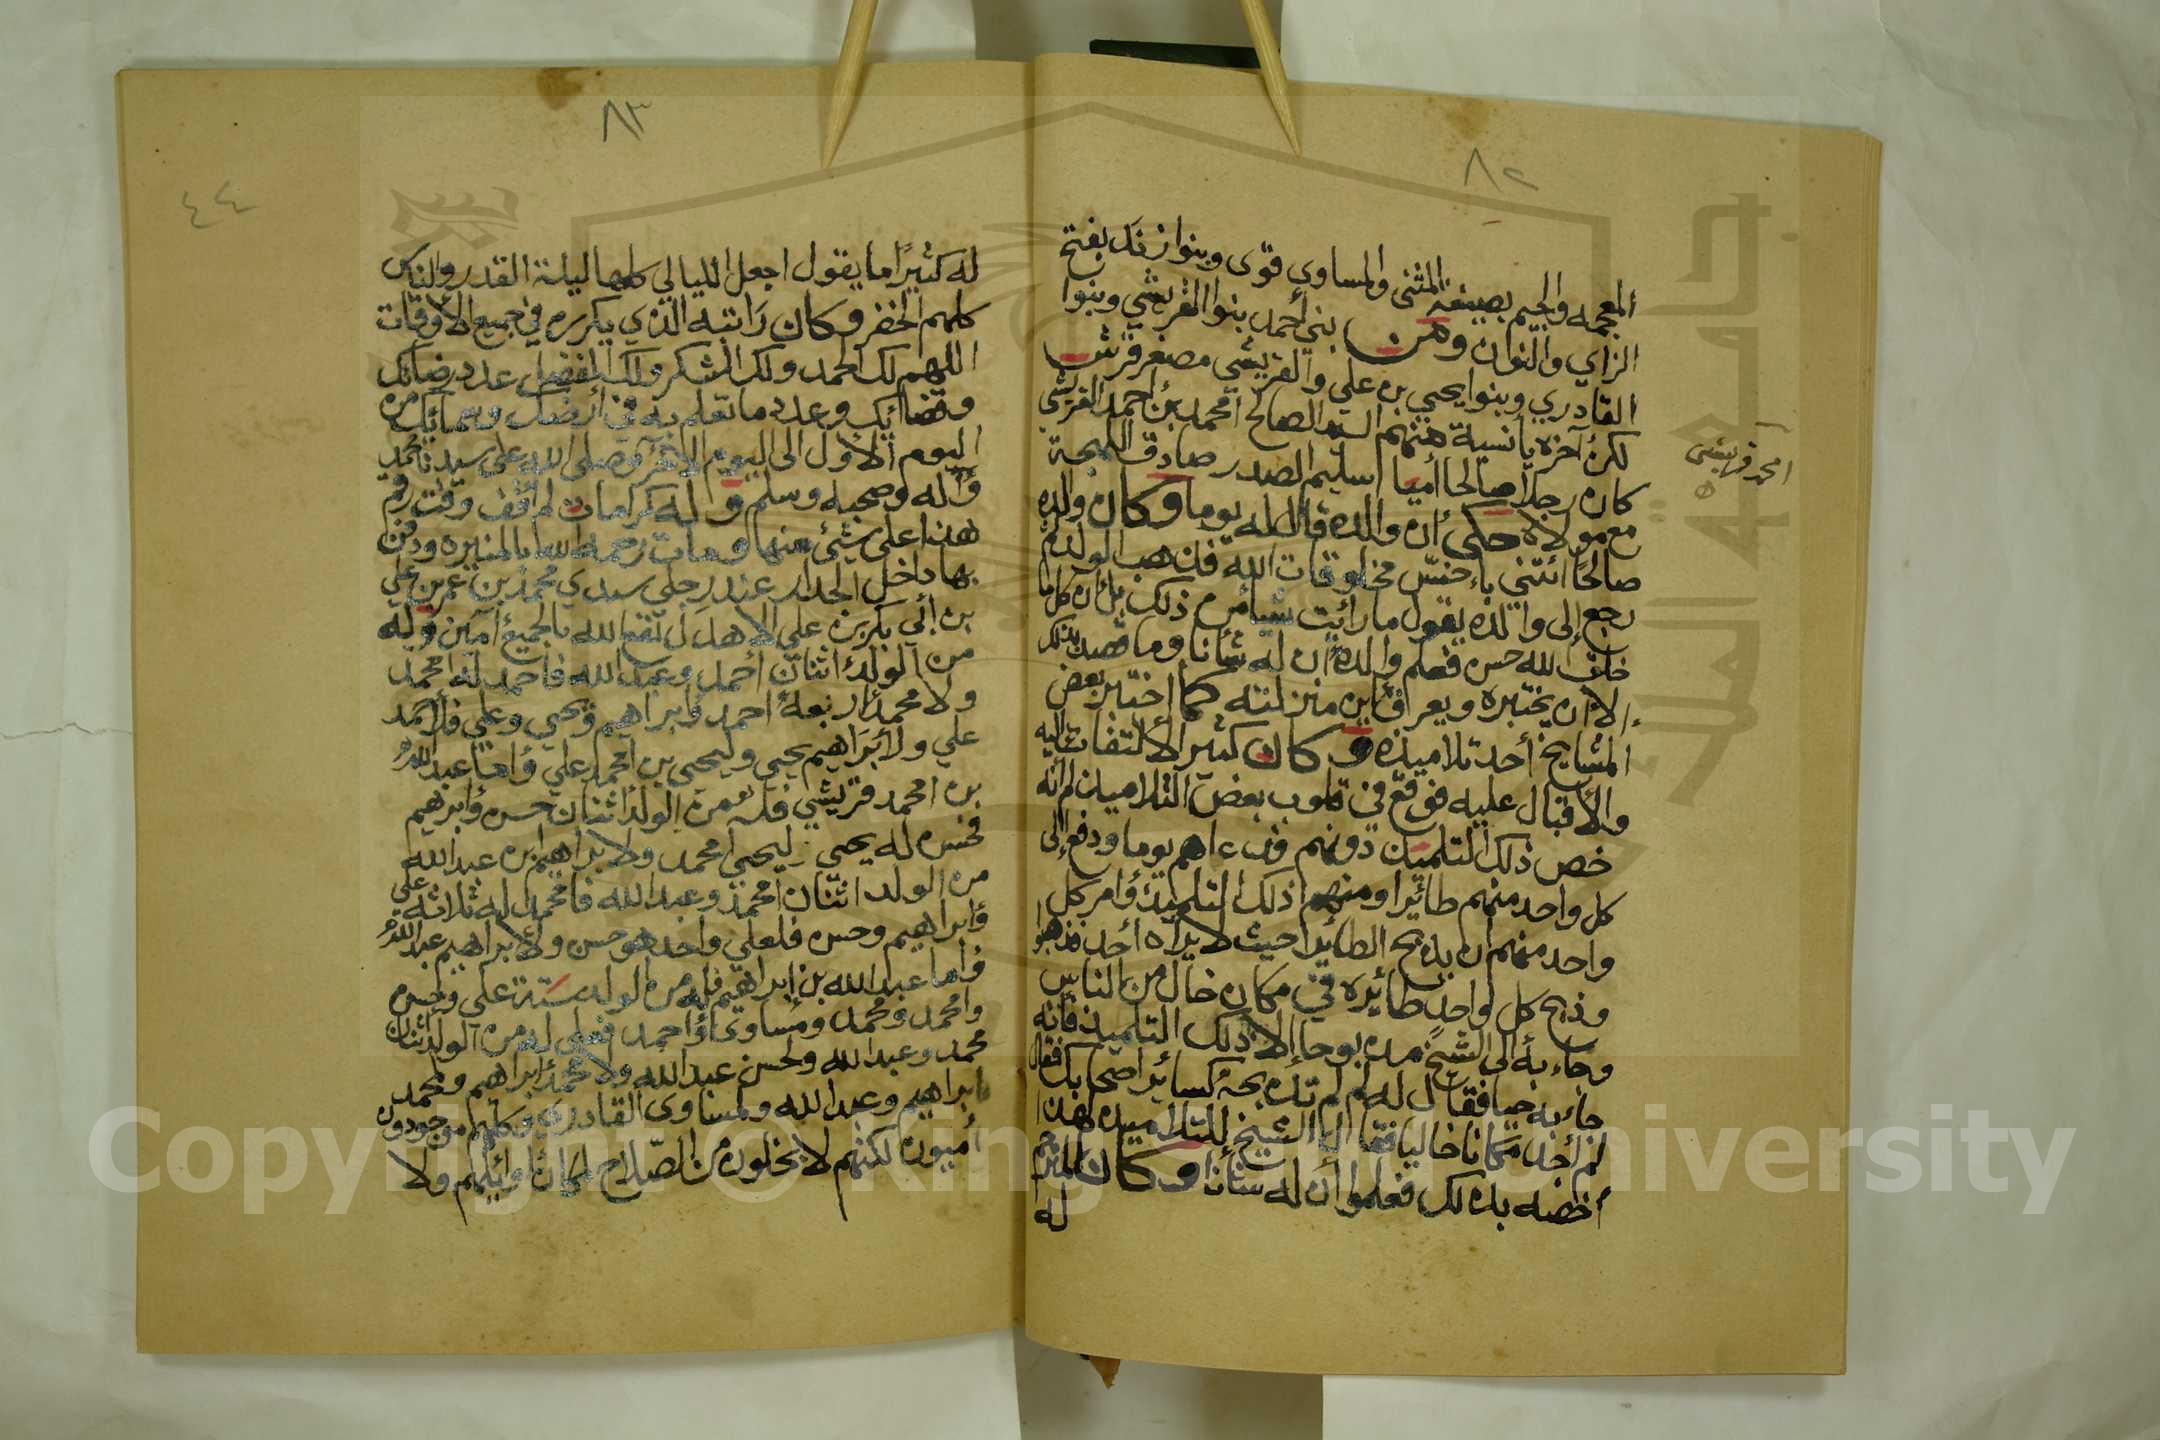 ٨٢
المعجمه والجيم بصيغة المثنى والمساوي قوى وبنوا زنك بفتح
الزاي والنوان ومن بني أحمد بنوا القريشي وبنوا
القادري وبنوا يحيى بن علي والقريشي مصغر قرش
لكن آخره يأنسية فمنهم السيد الصالح أمحمد بن أحمد القريشي
كان رجلا صالحا أميا سليم الصدر صادق اللهجة
مع مولاه حكي أن والده قال له يوما وكان والده
صالحا ائتني بأخس مخلوقات الله فذهب الولد ثم
رجع إلى والده يقول ما رأيت شيأ من ذلك بل أن كل ما
خلق الله حسن فعلم والده أن له شأنا وما قصد بذلك
إلا أن يختبره ويعرف أين منزلته كما اختبر بعض
المشايخ أحد تلاميذه وكان كثير الالتفات إليه
والأقبال عليه فوقع في قلوب بعض التلاميذ لم انه
خص ذلك التلميذ دونهم فدعاهم يوما ودفع إلى
كل واحد منهم طائرا ومنهم ذلك التلميذ وأمر كل
واحد منهم ان يذبح الطائر حيث لا يراه أحد فذهبوا
وذبح كل واحد طائره في مكان خال من الناس
وجاء به الى الشيخ مذبوحا إلا ذلك التلميذ فانه
جاء به حيا فقال له لم لم تذبحه كسائر اصحابك فقال
لم أجد مكانا خاليا فقال الشيخ للتلاميذ لهذا
أخصه بذلك فعلموا أن له شأنا وكان المترجم
له
امحمد قريشي
٨٣
٤٤
له كثيرا ما يقول اجعل الليالي كلها ليلة القدر والناس
كلهم الخضر وكان راتبه الذي يكرره في جميع الأوقات
اللهم لك الحمد ولك الشكر ولك الفضل عدد رضائك
وقضائك وعدد ما تعلم به في أرضك وسمائك من
اليوم الأول الى اليوم الآخر وصلى الله على سيدنا محمد
وآله وصحبه وسلم وله كرامات لم اقف وقت رقم
هذا على شئ منها ومات رحمه الله بالمنيره ودفن
بها داخل الجدار عند رجلي سيدي محمد بن عمر بن علي
بن أبي بكر بن علي الاهدل نفع الله بالجميع آمين وله
من الولد اثنان أحمد وعبد الله فاحمد له امحمد
ولا محمد أربعة احمد وابراهيم ويحيى وعلي فلأحمد
علي ولأبراهيم يحيى وليحيى بن امحمد علي وأما عبد الله
بن امحمد قريشي فله من الولد اثنان حسن وابرهيم
فحسن له يحيى ليحيى امحمد ولابراهيم بن عبد الله
من الولد اثنان امحمد وعبد الله فامحمد له ثلاثة علي
وابراهيم وحسن فلعلي واحد هو حسن ولأبراهيم عبد الله
وأما عبد الله بن إبراهيم فله من الولد ستة علي وحسن
وامحمد ومحمد ومساوى وأحمد فعلى له من الولد اثنان
محمد وعبد الله ولحسن عبد الله ولا محمد ابراهيم ولمحمد
ابراهيم وعبد الله ولمساوى القادري وكلهم موجودون
أميون لكنهم لا يخلون من الصلاح لمكان أوائلهم ولا
Copyright © King University